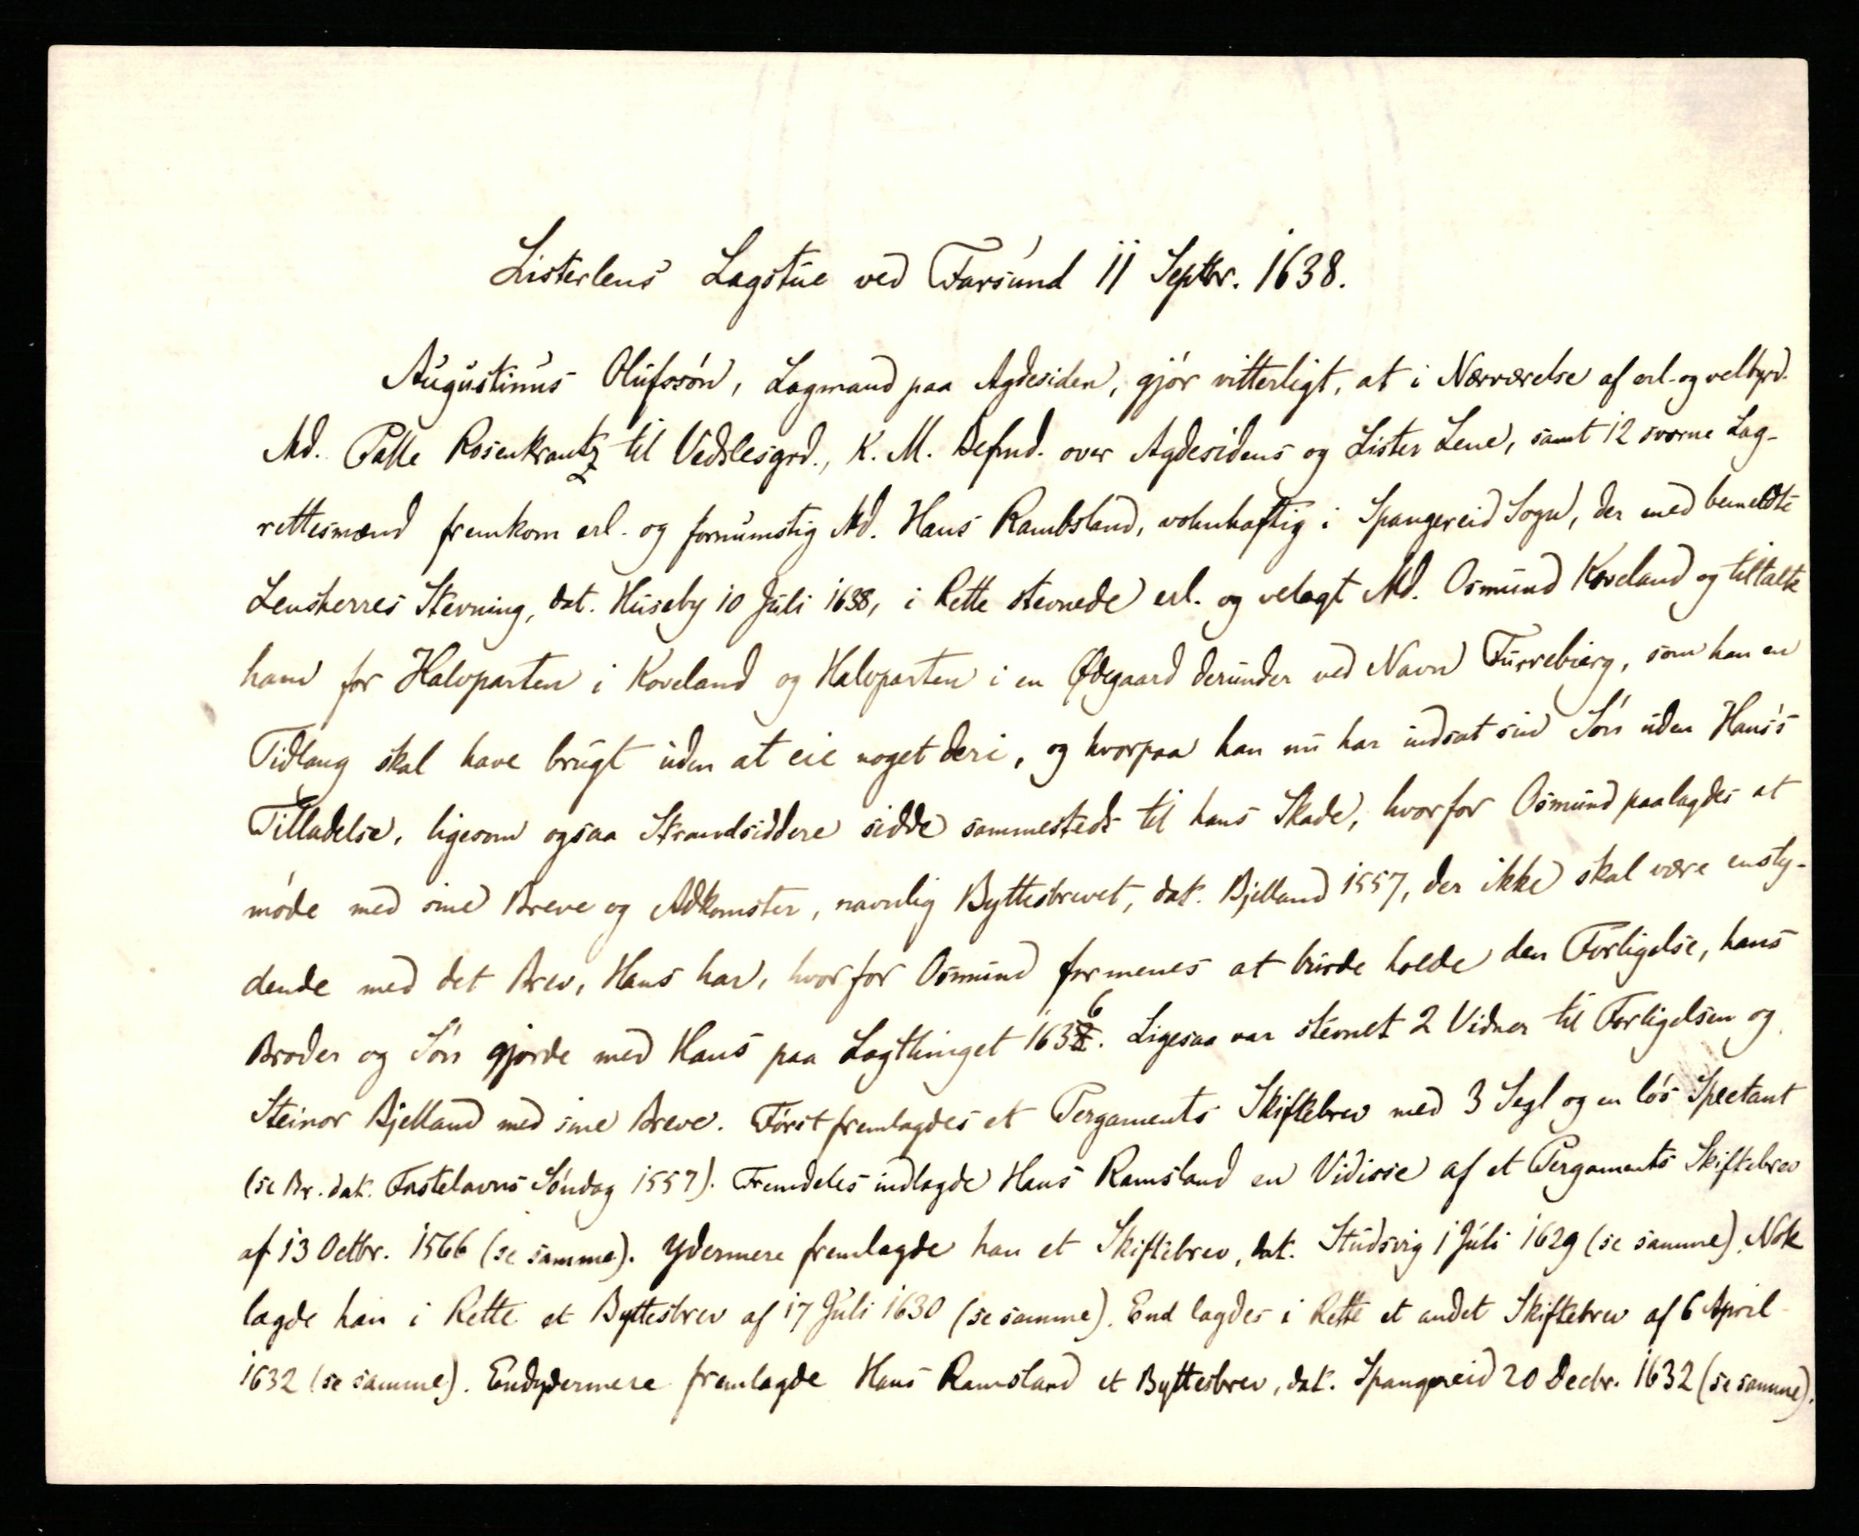 Listerlens Lagstue ved Farsund 11 Septbr. 1638.
Augustinus Olufssön, Lagmand paa Agdesiden, gjör vitterligt, at i Nærværelse af erl. og velbyrd.
Md. Palle Rosenkrantz til Vedslesgrd., K. M. Befmd. over Agdesidens og Lister Lene, samt 12 svorne Lag-
rettesmænd fremkom erl. og fornumstig Md. Hans Rambsland, wohnhaftig i Spangereid Sogn, der med bemeldte
Lensherres Stevning, dat. Huseby 10 Juli 1638, i Rette stevnede erl. og velagt Md. Osmund Koveland og tiltalte
ham for Halvparten i Koveland og Halvparten i en Ødegaard derunder ved Navn Furrebierg, som han en
Tidlang skal have brugt uden at eie noget deri, og hvorpaa han nu har indsat sin Sön uden Hans's
Tilladelse, ligesom ogsaa Strandsiddere sidde sammesteds til hans Skade, hvorfor Osmund paalagdes at
möde med sine Breve og Adkomster, navnlig Byttesbrevet, dat. Bjelland 1557, der ikke skal være ensty-
dende med det Brev, Hans har, hvorfor Osmund formenes at burde holde den Forligelse, hans
Broder og Sön gjorde med Hans paa Lagthinget 1636. Ligesaa var stevnet 2 Vidner til Forligelsen og
Steinor Bjelland med sine Breve. Först fremlagdes et Pergaments Skiftebrev med 3 Segl og en lös Spectant
(se Br. dat. Fastelavns Söndag 1557). Fremdeles indlagde Hans Ramsland en Vidisse af et Pergaments Skiftebrev
af 13 Octbr. 1566 (se samme). Ydermere fremlagde han et Skiftebrev, dat. Studsvig 1 Juli 1629 (se samme). Nok
lagde han i Rette et Byttesbrev af 17 Juli 1630 (se samme). End lagdes i Rette et andet Skiftebrev af 6 April
1632 (se samme). Endydermere fremlagde Hans Ramsland et Byttesbrev, dat. Spangereid 20 Decbr. 1632 (se samme).